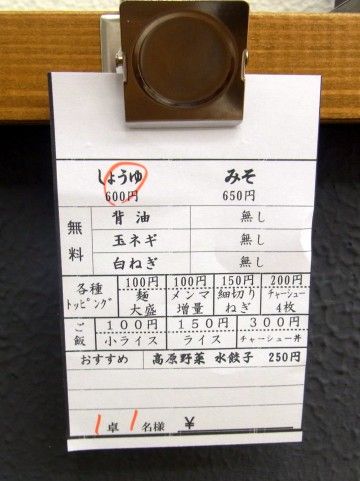 しょうゆ みそ
600円 650円
無料 背油 無し
玉ネギ 無し
白ねぎ 無し
各種トッピング 100円 100円 150円 200円
麺大盛 メンマ増量 細切りねぎ チャーシュー4枚
ご飯 100円 150円 300円
小ライス ライス チャーシュー丼
おすすめ 高原野菜 水餃子 250円
1卓 1名様 ¥